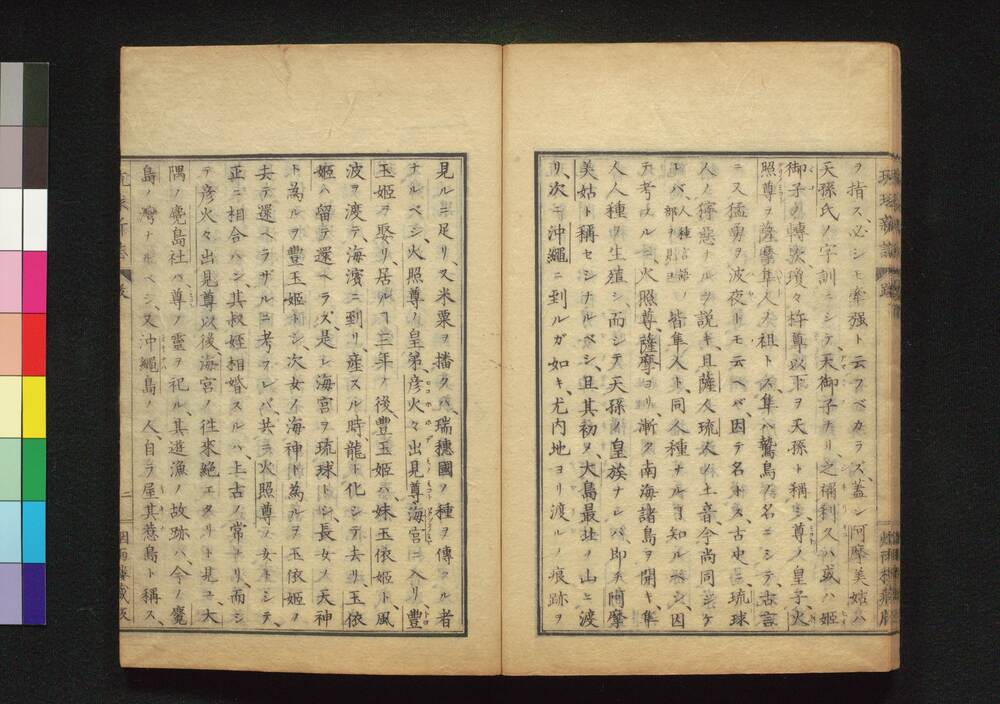 ヲ指ス、必シモ牽强ト云フベカラズ、蓋シ阿摩美姑ハ
天孫氏ノ字訓ニシテ、天御子ナリ、之禰利久ハ或ハ姬
御子ノ轉、次瓊々杵尊以下ヲ天孫ト稱シ、尊ノ皇子火
照尊ヲ薩摩隼人ノ祖トス、隼ハ鷙鳥ノ名ニシテ、古言
ニス猛勇ヲ波夜トモ云ベバ、因テ名トス、古史ニ琉球
人ノ獰惡ナルヲ説キ、且薩人琉人ノ土音、今尚同シケ
レバ、皆隼人ト同人種ナルヲ知ルベシ、因
テ考フルニ火照尊、薩摩ヨリ、漸ク南海諸島ヲ開キ隼
人人種ヲ生殖シ、而シテ天孫ノ皇族ナレバ、即チ阿摩
美姑ト稱セシナルベシ、且其初ヲ大島最北ノ山ニ渡
リ、次ニ沖繩ニ到ルガ如キ、尤内地ヨリ渡ルノ痕跡ヲ
見ルニ足リ、又米粟ヲ播クハ、瑞穗國ノ種ヲ傳フル者
ナルベシ、火照尊ノ皇弟彥火々出見尊海宮ニ入リ、豐
玉姬ヲ娶リ、居ルコ三年ノ後、豐玉姬ハ、妹玉依姬ト、風
波ヲ凌テ海濱ニ到リ、産スル時、龍ト化シテ去リ、玉依
姬ハ留テ還ヘラズ、是レ海宮ヲ琉球トシ、長女ノ天神
ト爲ルヲ豐玉姬トシ、次女ノ海神ト爲ルヲ玉依姬ノ
去テ還ヘラザルニ考フレバ、共ニ火照尊ノ女トシテ、
正ニ相合ハン、其叔姪相婚スルハ、上古ノ常ナリ、而シ
テ彥火々出見尊以後、海宮ノ往來絕エタリト見ユ、大
隅ノ麑島社ハ、尊ノ靈ヲ祀ル、其遊漁ノ故跡ハ、今ノ麑
島ノ灣ナルベシ、又沖繩島ノ人、自ラ屋其惹島ト稱ス、
二